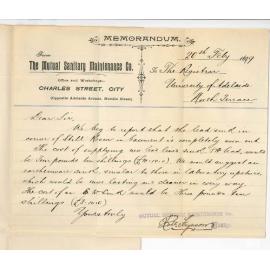 MEMORANDUM.
From
The Mutual Sanitary Maintenance Co.
Office and Workshops—
CHARLES STREET, CITY
(Opposite Adelaide Arcade, Rundle Street)
20th Feby 1899
To The Registrar
University of Adelaide
North Terrace
Dear Sir,
We beg to report that the lead sink in
corner of Still Room in basement is completely worn out
The cost of supplying new lead lined sink, lead, would
be four pounds ten shillings (£4-10-0). We would suggest an
earthenware sink, similar to those in laboratory upstairs,
which would be more lasting and cleaner in every way.
The cost of an sink would be three pounds ten
shillings (£3-10-0)
Yours truly
MUTUAL SANITARY MAINTENANCE CO.